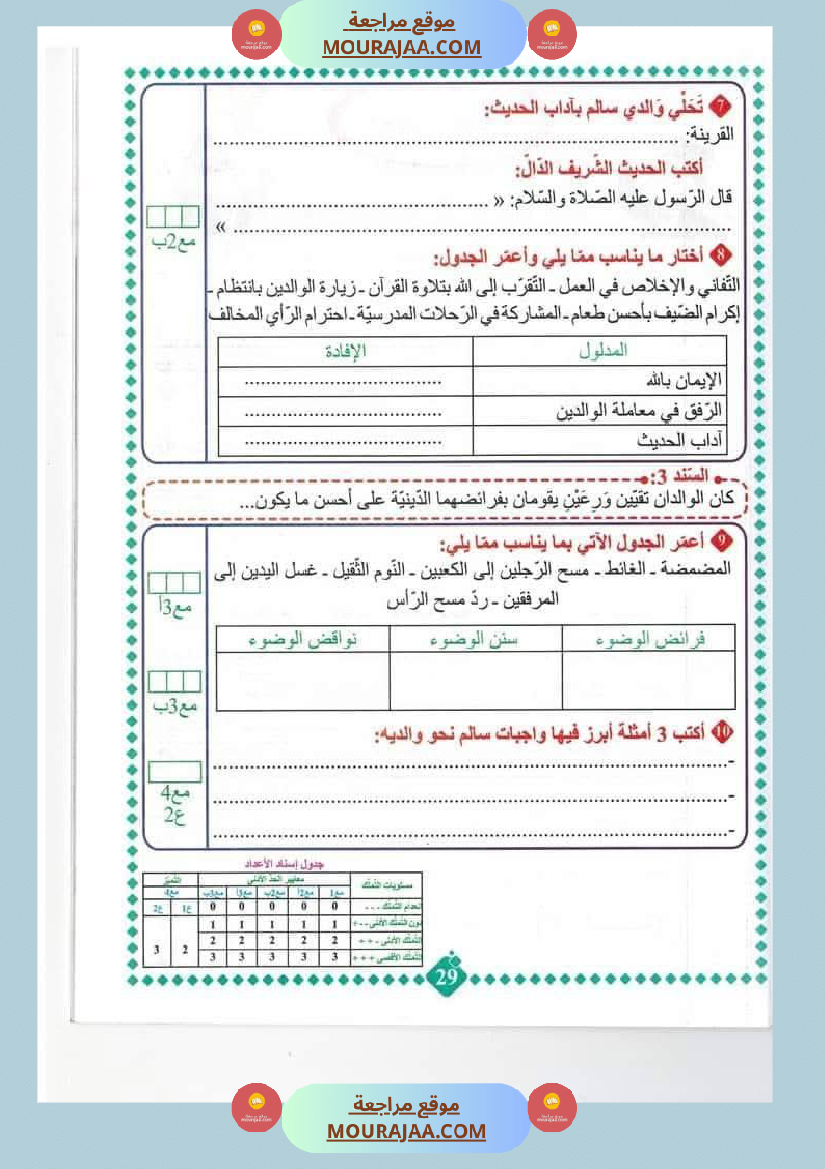 موقع مراجعة
MOURAJAA.COM
7 تَحَلِّي وَالدي سالم بآداب الحديث:
القرينة: ........................................
أكتب الحديث الشّريف الدّالّ:
قال الرّسول عليه الصّلاة والسّلام: « ........................................
........................................ »
مع2ب
8 أختار ما يناسب ممّا يلي وأعمّر الجدول:
التّفاني والإخلاص في العمل ـ التّقرّب إلى الله بتلاوة القرآن ـ زيارة الوالدين بانتظام ـ
إكرام الضّيف بأحسن طعام ـ المشاركة في الرّحلات المدرسيّة ـ احترام الرّأي المخالف
المدلول الإفادة
الإيمان بالله ........................................
الرّفق في معاملة الوالدين ........................................
آداب الحديث ........................................
السّند 3:
كان الوالدان تقيّين وَرِعَيْنِ يقومان بفرائضهما الدّينيّة على أحسن ما يكون...
9 أعمّر الجدول الآتي بما يناسب ممّا يلي:
المضمضة ـ الغائط ـ مسح الرّجلين إلى الكعبين ـ النّوم الثّقيل ـ غسل اليدين إلى
المرفقين ـ ردّ مسح الرّأس
مع3أ
فرائض الوضوء سنن الوضوء نواقض الوضوء
مع3ب
10 أكتب 3 أمثلة أبرز فيها واجبات سالم نحو والديه:
-........................................
-........................................
-........................................
مع4
ع2
جدول إسناد الأعداد
مستويات التّملّك معايير الحدّ الأدنى التّميّز
مع1 مع2أ مع2ب مع3أ مع3ب مع4
انعدام التّملّك - - - 0 0 0 0 0 ع1 ع2
دون التّملّك الأدنى - - + 1 1 1 1 1
التّملّك الأدنى - + + 2 2 2 2 2 2 3
التّملّك الأقصى + + + 3 3 3 3 3
29
موقع مراجعة
MOURAJAA.COM